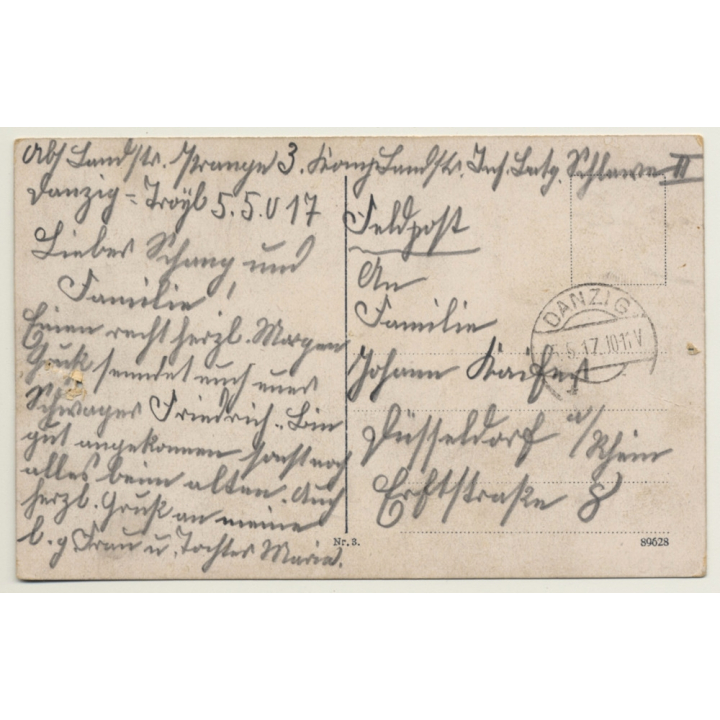 Abs Landstr. Prange 3. Komp. Landst. Inf. Batz. Schlawe II
Danzig = Troyl 5.5.17
Lieber Schang und
Familie!
Einen recht herzl. Morgen
Gruß senndet euch euer
Schwager Friedrich. Bin
gut angekommen sonst noch
alles beim alten. Auch
herzl. Gruß an meine
l. Frau u. Tochter Marie.
Feldpost
An
Familie
Johann
Düsseldorf a/Rhein
Erftstraße 8
DANZIG
5.17.10-11V
Nr. 3.
89628